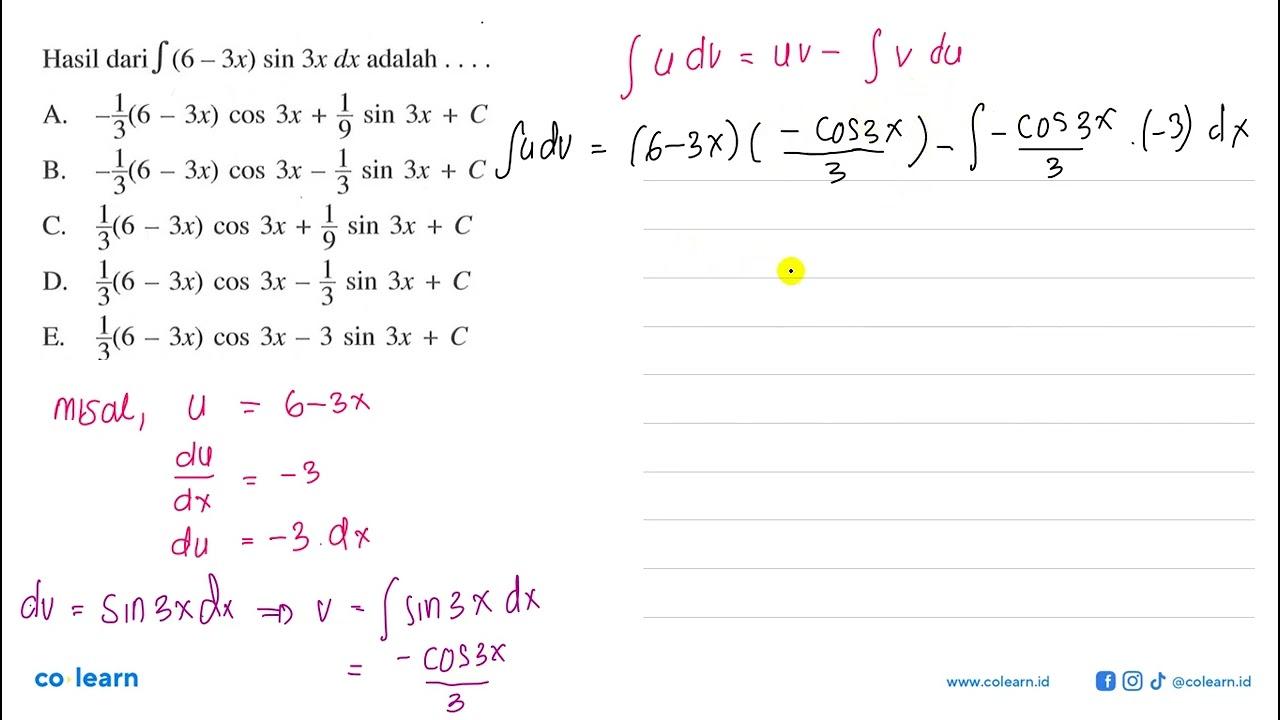 Hasil dari ∫ (6 – 3x) sin 3x dx adalah . . . .
A. –1/3(6 – 3x) cos 3x + 1/9 sin 3x + C
B. –1/3(6 – 3x) cos 3x – 1/3 sin 3x + C
C. 1/3(6 – 3x) cos 3x + 1/9 sin 3x + C
D. 1/3(6 – 3x) cos 3x – 1/3 sin 3x + C
E. 1/3(6 – 3x) cos 3x – 3 sin 3x + C
misal, u = 6-3x
du/dx = -3
du = -3 . dx
dv = sin 3x dx ⇒ v = ∫ sin 3x dx
= -cos 3x/3
∫ u dv = uv - ∫ v du
∫ u dv = (6-3x)(-cos 3x/3) - ∫ -cos 3x/3 . (-3) dx
co learn
www.colearn.id
@colearn.id